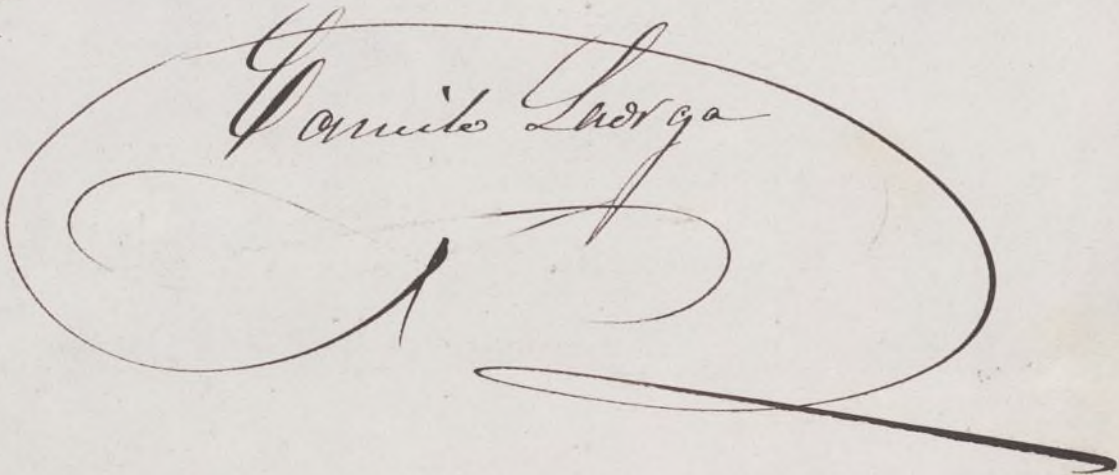 Camilo Laorga